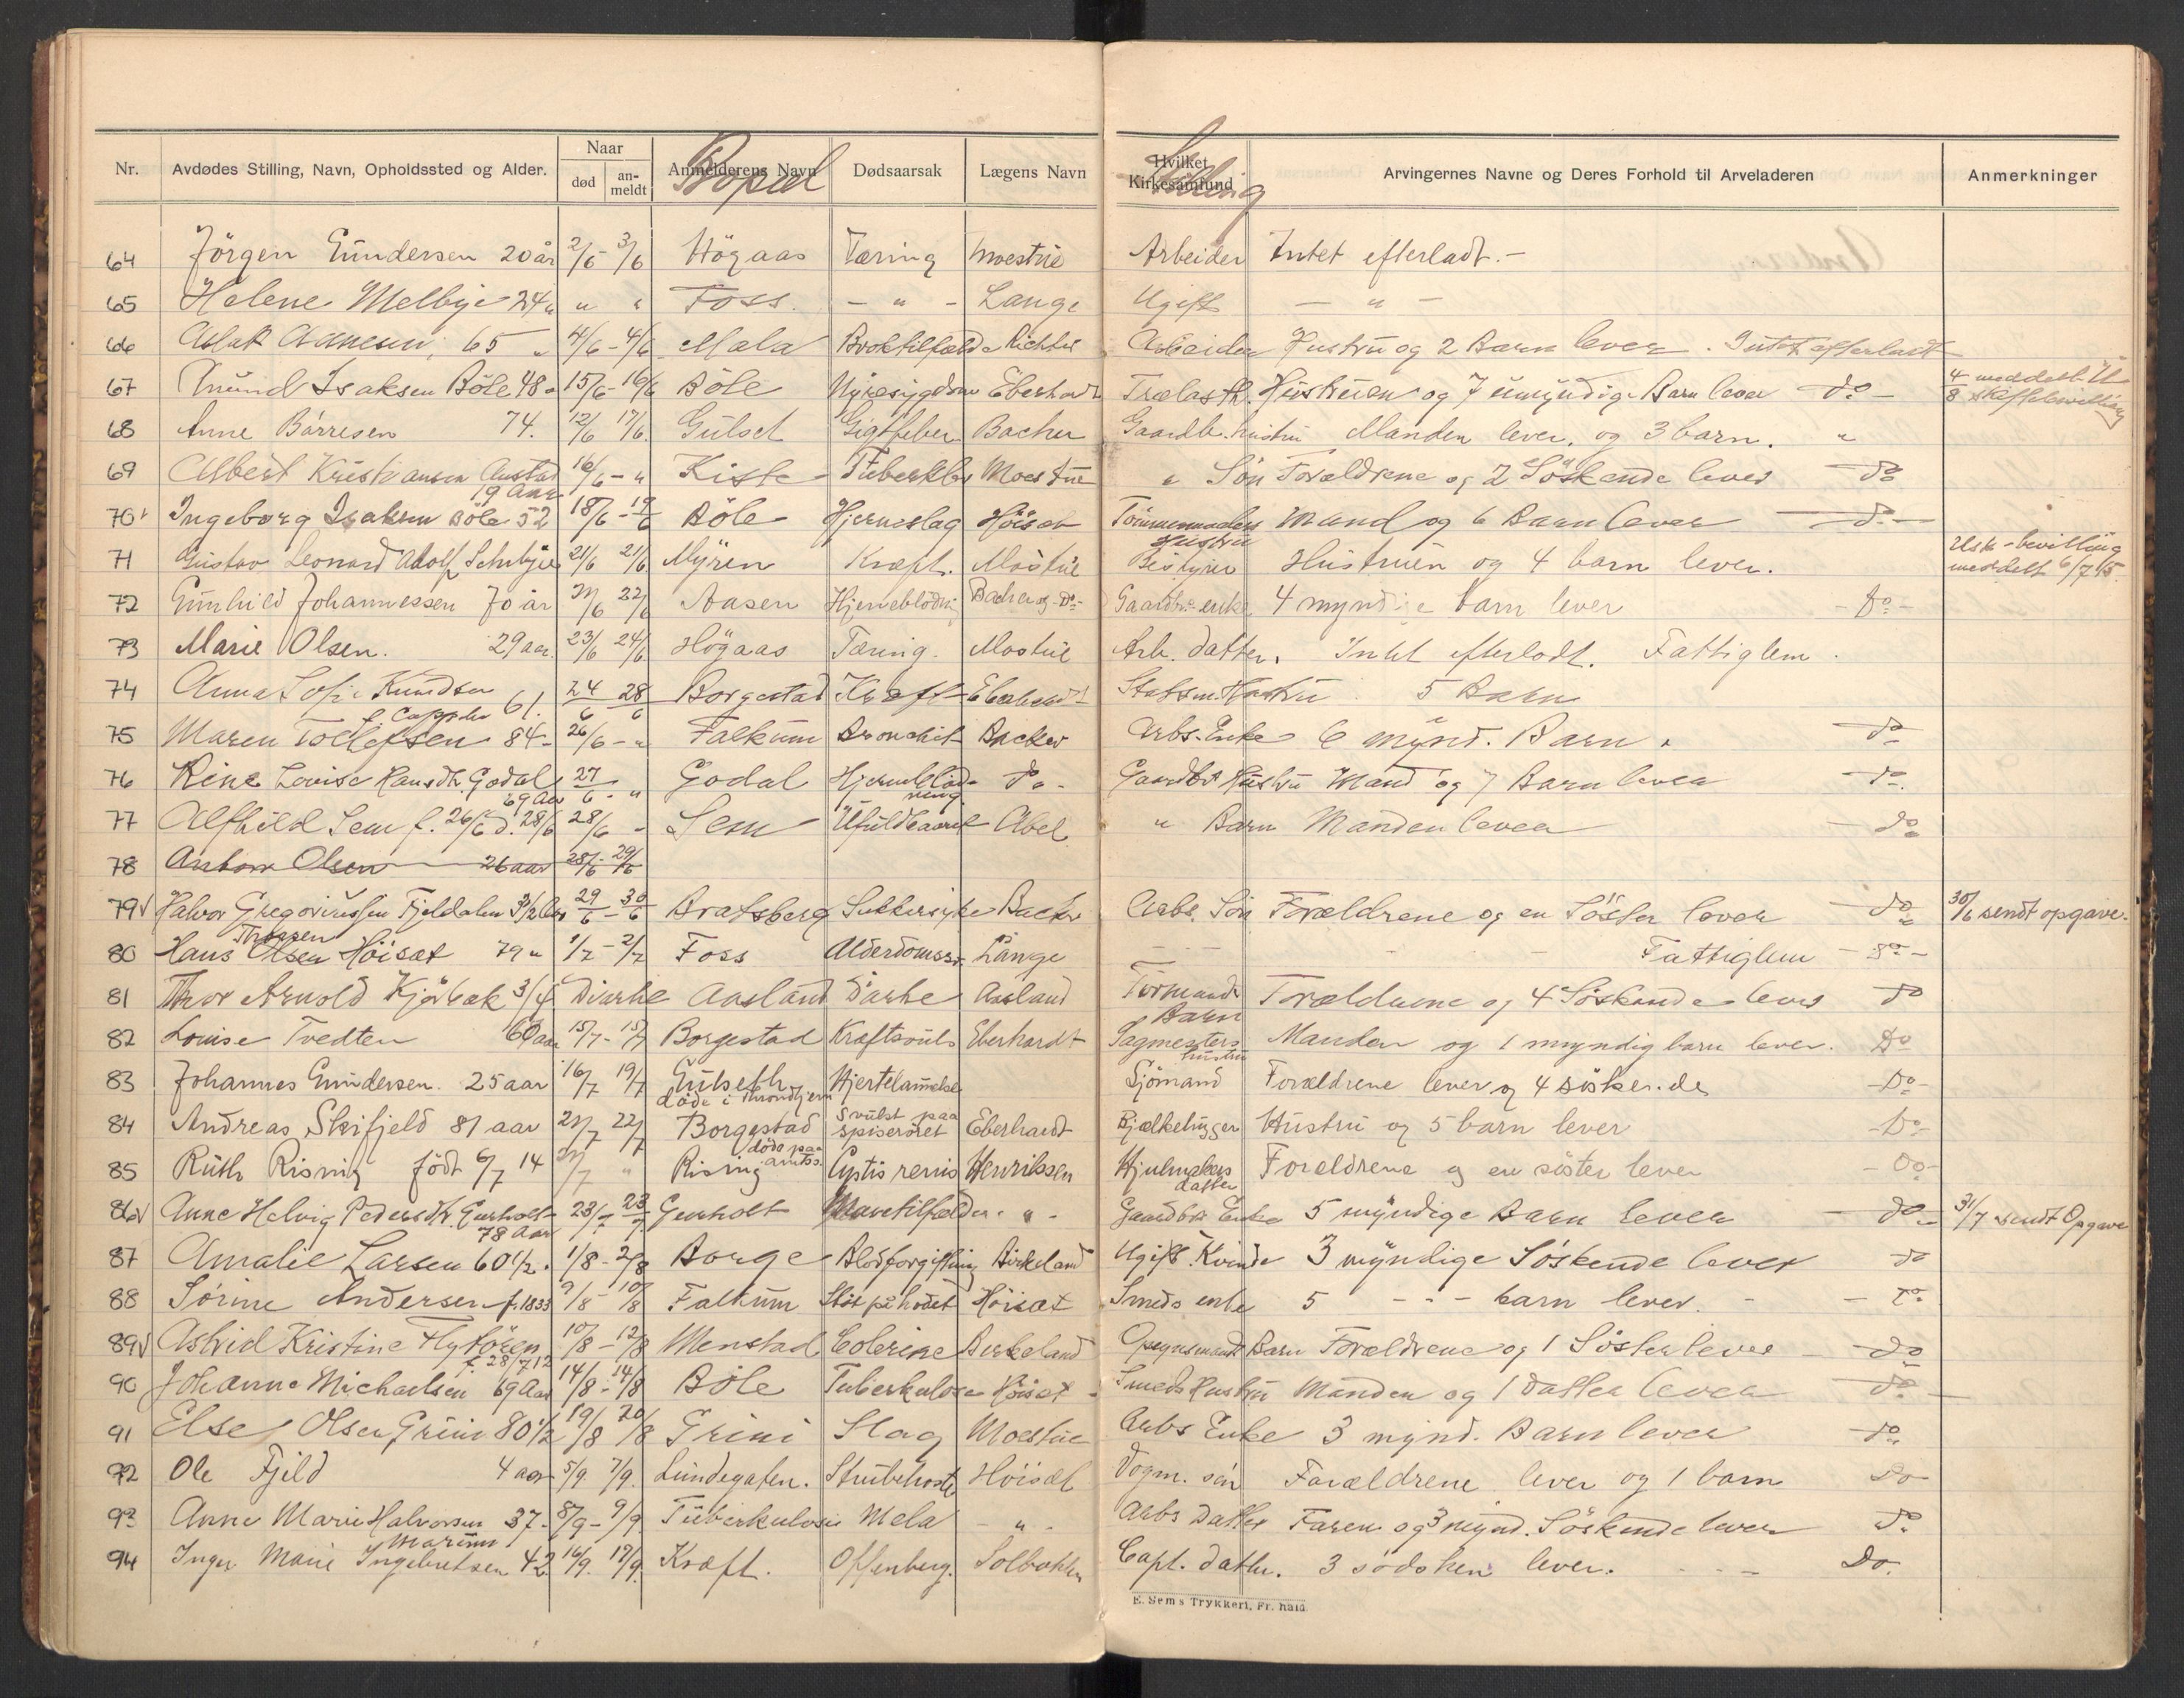 Nr. Avdødes Stilling, Navn, Opholdssted og Alder. Naar død an-meldt Anmelderens Navn Bopæl Dødsaarsak Lægens Navn Hvilket Kirkesamfund Stilling Arvingernes Navne og Deres Forhold til Arveladeren Anmerkninger
64 Jörgen Gundersen 20 år 2/6 - 3/6 Högaas Tæring Moestue Arbeider Intet efterladt. -
65 Helene Melbye 24 " " " Foss. - " - Lange Ugift - " -
66 Aslak Aanesen, 65 " 4/6 - 4/6 Mæla Broktilfælde Richter Arbeider Hustru og 2 Barn lever. Intet efterladt
67 Amund Isaksen Böle 48 " 15/6 - 16/6 Böle Nyresygdom Eberhardt Trælasth. Hustruen og 7 umyndige Barn lever - do - 4/8 meddelt U skiftebevilling
68 Anne Börresen 74. 12/6 17/6. Gulset Gigtfeber Backer Gaardb. hustru Manden lever, og 3 barn. "
69 Albert Kristiansen Austad 19 Aar 16/6 - " Kiste Tuberklos Moestue " Sön Forældrene og 2 Söskende lever do
70 Ingeborg Isaksen Böle 52 18/6 - 19/6 Böle Hjerneslag Höisæt Tömmermælers Hustru Mand og 6 Barn lever - do -
71 Gustav Leonard Adolf Schulzjer 21/6 21/6 Myren Kræft. Mostue Bestyrer Hustruen og 4 barn lever. Usk-bevilling meddelt 6/7 15.
72 Gunhild Johannessen 70 år 21/6 22/6 Aasen Hjerneblödning Backer og Do - Gaardbr. enke 4 myndige barn lever - Do -
73 Marie Olsen. 29 aar. 23/6 24/6 Högaas Tæring. Mostue Arb. datter. Intet efterladt. Fattiglem.
74 Anna Sofie Knudsen f. Cappelen 61. 24/6 28/6 Borgestad Kræft Eberhardt Hustru 5 Barn
75 Maren Tollefsen 84 - 26/6 - " Falkum Bronchit Backer Arbs. Enke 6 mynd. Barn. do
76 Kine Lovise Hansdtr. Godal 69 Aar 27/6 - " Godal Hjerneblöd-ning do - Gaardbr Hustru Mand og 7 Barn lever do
77 Alfhild Sem f. 26/6 d. 28/6 28/6 - Sem Ufuldbaaret Abel " Barn Manden lever do
78 Anton Olsen 26 aar 28/6 - 29/6
79 Halvor Gregoriussen Fjeldalen 3 1/2 Aar 29/6 - 30/6 Bratsberg Sukkersyke Backer Arbs. Sön Forældrene og en Söster lever do 30/6 sendt opgave -
80 Hans Thoresen Olsen Höisæt 79 " 1/7 - 2/7 Foss Alderdomssv. Lange - - - - Fattiglem - do -
81 Thor Arnold Kjörbæk 3/4 Diarhe Aasland Diarhe Aasland Formands Barn Forældrene og 4 Söskende lever do
82 Louise Tvedten 60 aar 15/7 - 15/7 Borgestad Kræftsvuls Eberhardt Sagmesters hustru Manden og 1 myndig barn lever. Do
83 Johannes Gundersen. 25 aar 16/7 19/7 Gulseth döde i Throndhjem Hjertelammelse Sjömand Forældrene lever og 4 söskende - Do -
84 Andreas Skifjeld 81 aar 21/7 22/7 Borgestad Svulst paa spiseröret Eberhardt Bjælkehugger Hustru og 5 barn lever - Do -
85 Ruth Rising födt 6/7 14 21/7 " Rising döde paa amtss. Cystis renis Henriksen Hjulmakers datter Forældrene og en söster lever - Do -
86 Anne Helvig Pedersdtr. Gurholt 78 Aar 23/7 - 23/7 Gurholt Mavetilfælde - " - Gaardbr Enke 5 myndige Barn lever do - 31/7 sendt Opgave
87 Amalie Larsen 60 1/2. 1/8 - 2/8 Borge Blodforgiftning Birkeland Ugift Kvinde 3 myndige Söskende lever do
88 Sörine Andersen f. 1833 9/8 - 10/8 Falkum Stöt på hodet Höisæt Smeds enke 5 - - - barn lever. - - Do
89 Astrid Kristine Flytören f. 28/7 12 10/8 - 12/8 Menstad Colerine Berkeland Opsynsmands Barn Forældrene og 1 Söster lever - do
90 Johanne Michaelsen 69 Aar 14/8 - 14/8 Böle Tuberkulose Höisæt - Smeds Hustru Manden og 1 datter lever do -
91 Else Olsen Grini 80 1/2 19/8 20/8 Grini Slag Moestue Arbs Enke 3 mynd. Barn lever do
92 Ole Fjeld 4 aar 5/9. 7/9. Lundegaten. Strubehoste Höisæt Vogm. sön Forældrene lever og 1 barn Do
93 Anne Marie Halvorsen 37 - 8/9 - 9/9 Tuberkulose Mæla - " - Arbs datter Faren og 3 mynd. Söskende lever do
94 Inger Marie Ingebretsen 42. 16/9. 17/9. Kræft. Offenberg. Solbakken Capt. datter. 3 södsken lever. - - - Do.
E. Sems Trykkeri, Fr.hald